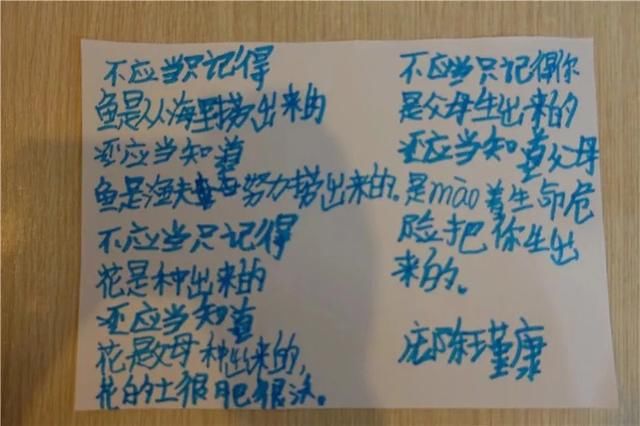 不应当只记得
鱼是从海里捞出来的
还应当知道
鱼是渔夫努力捞出来的。
不应当只记得
花是种出来的
还应当知道
花是父母种出来的,
花的土很肥很沃。
不应当只记得你
是父母生出来的
还应当知道父母
是mào着生命危
险把你生出
来的。
陈瑾康